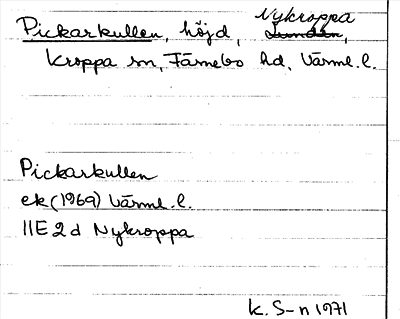 Nykroppa
Pickarkullen, höjd, Lunden,
Kroppa sn, Färnebo hd, Värml. l.
Pickarkullen
ek (1969) Värml. l.
11E 2d Nykroppa
K. S-n 1971